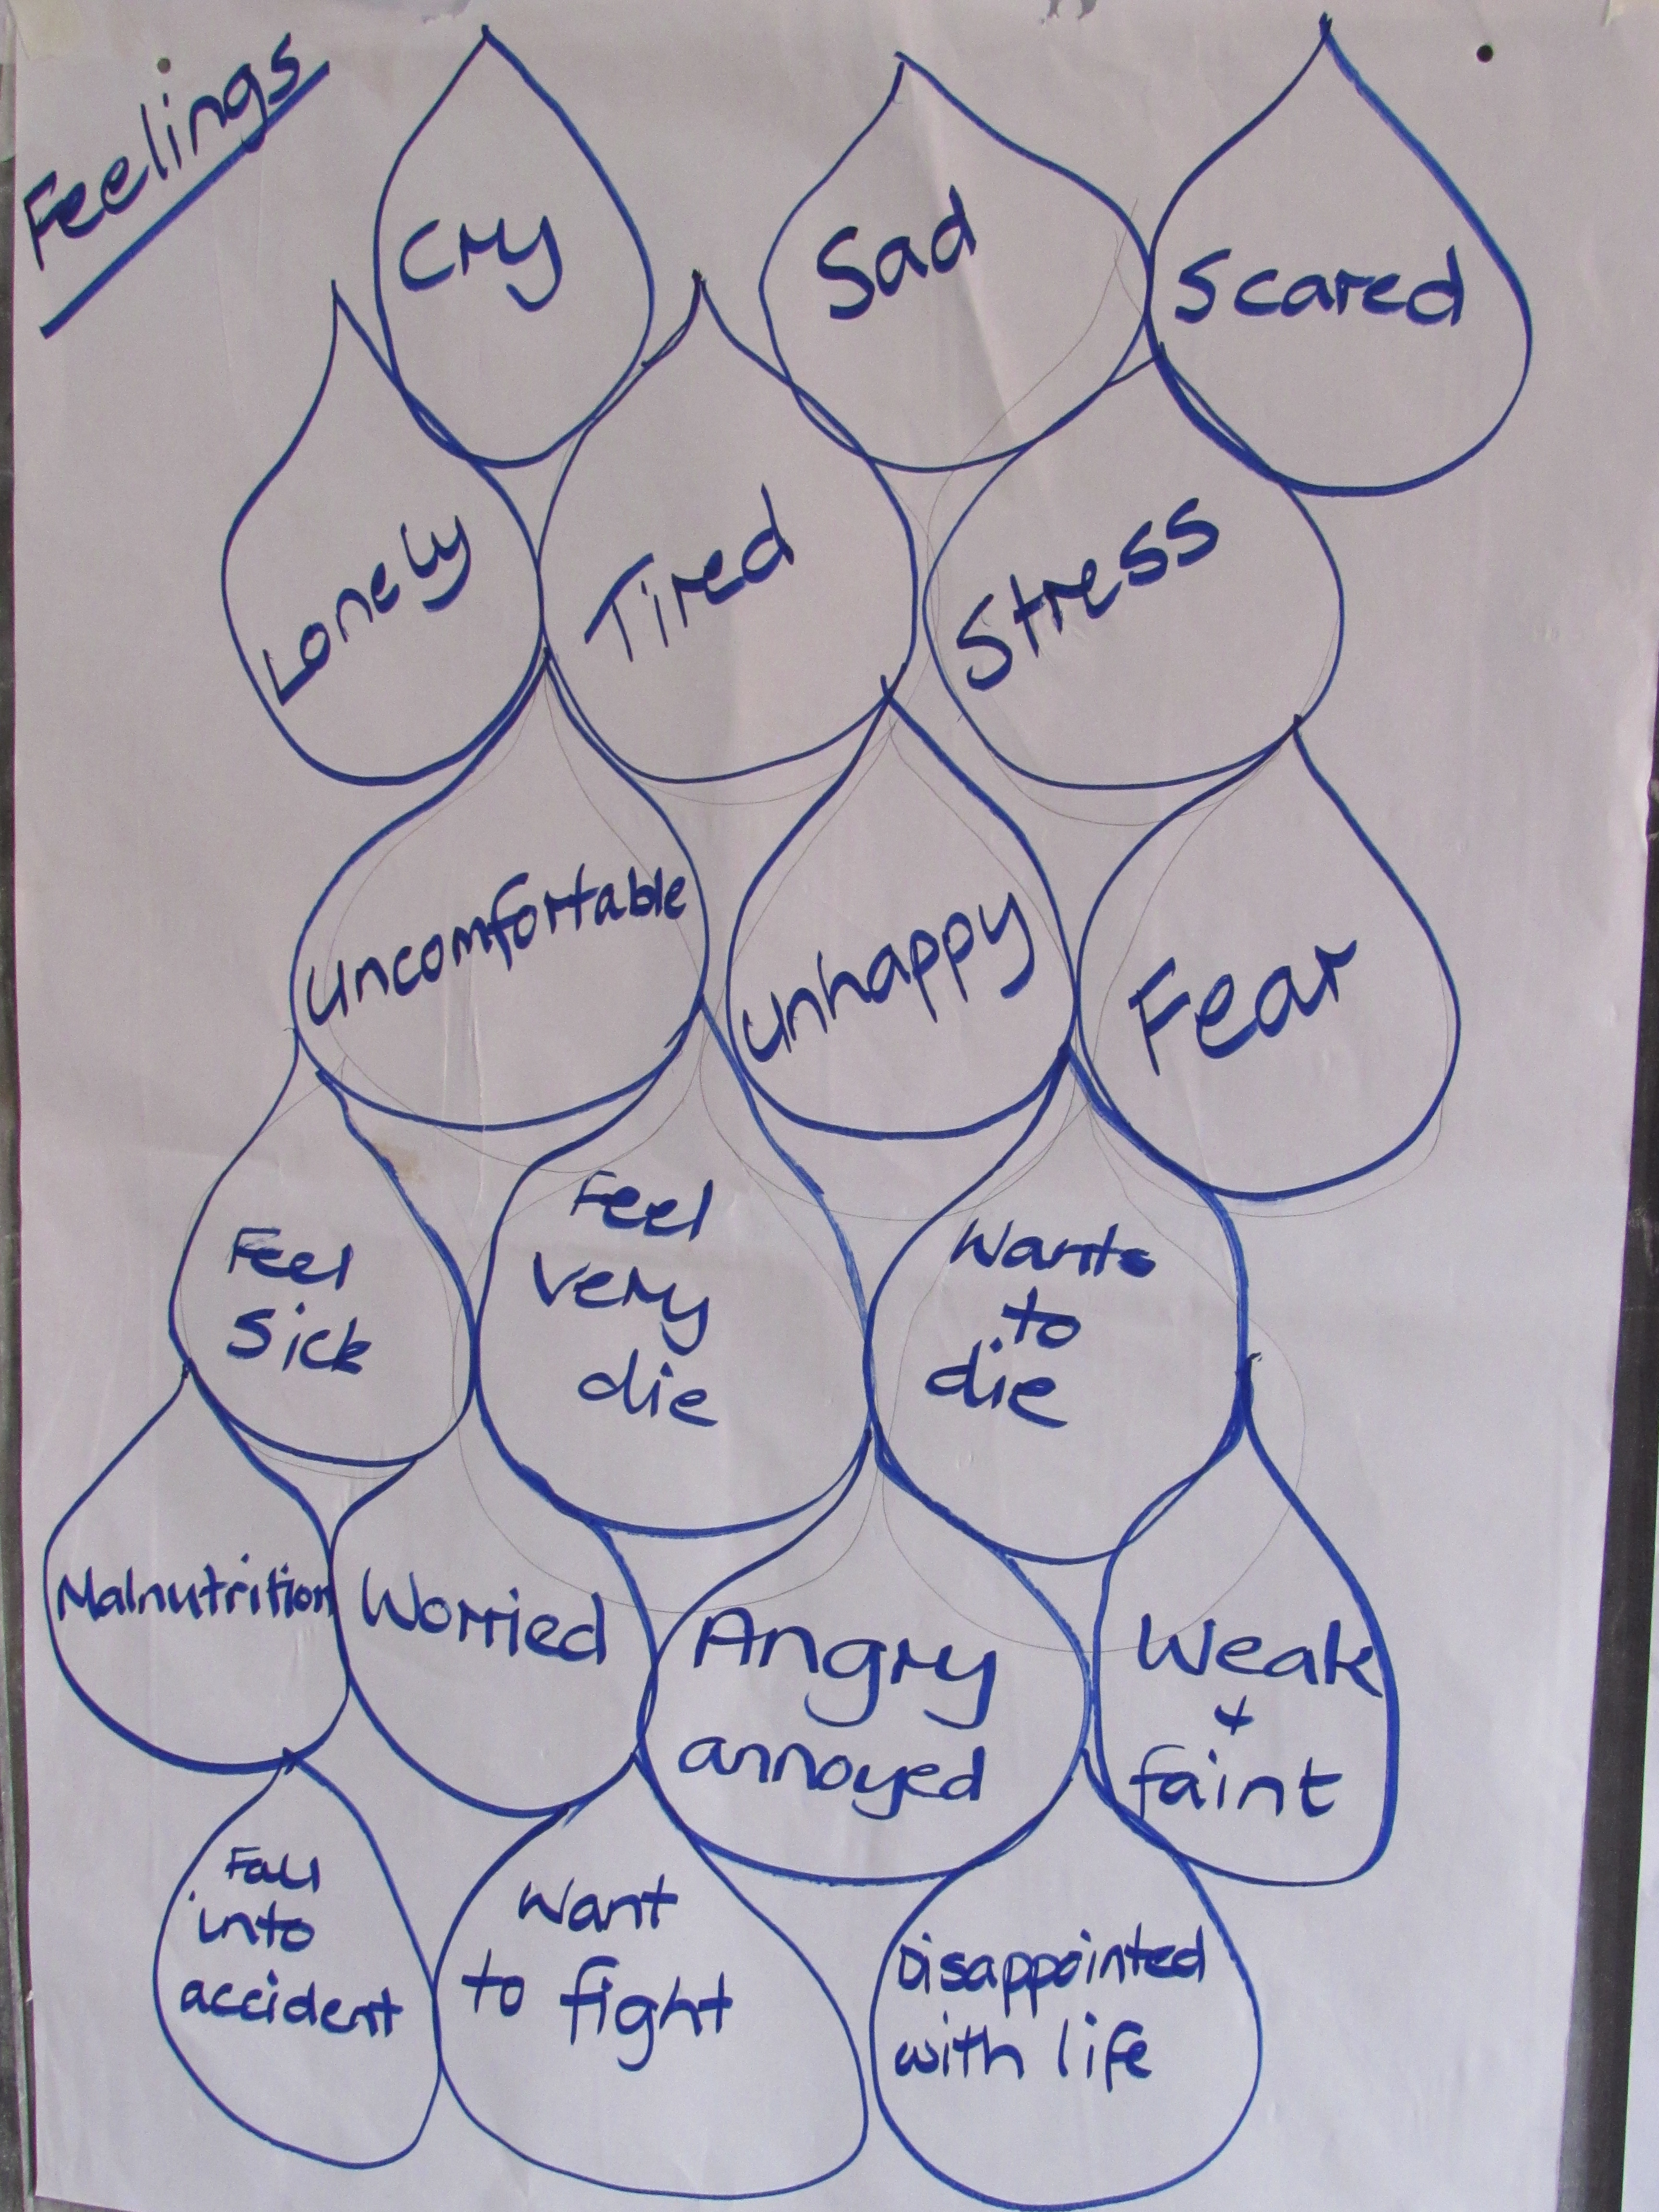 Feelings
Cry
Sad
Scared
Lonely
Tired
Stress
uncomfortable
unhappy
Fear
Feel
Sick
Feel
very
die
Wants
to
die
Malnutrition
Worried
Angry
annoyed
Weak
+
faint
Fall
into
accident
Want
to fight
Disappointed
with life